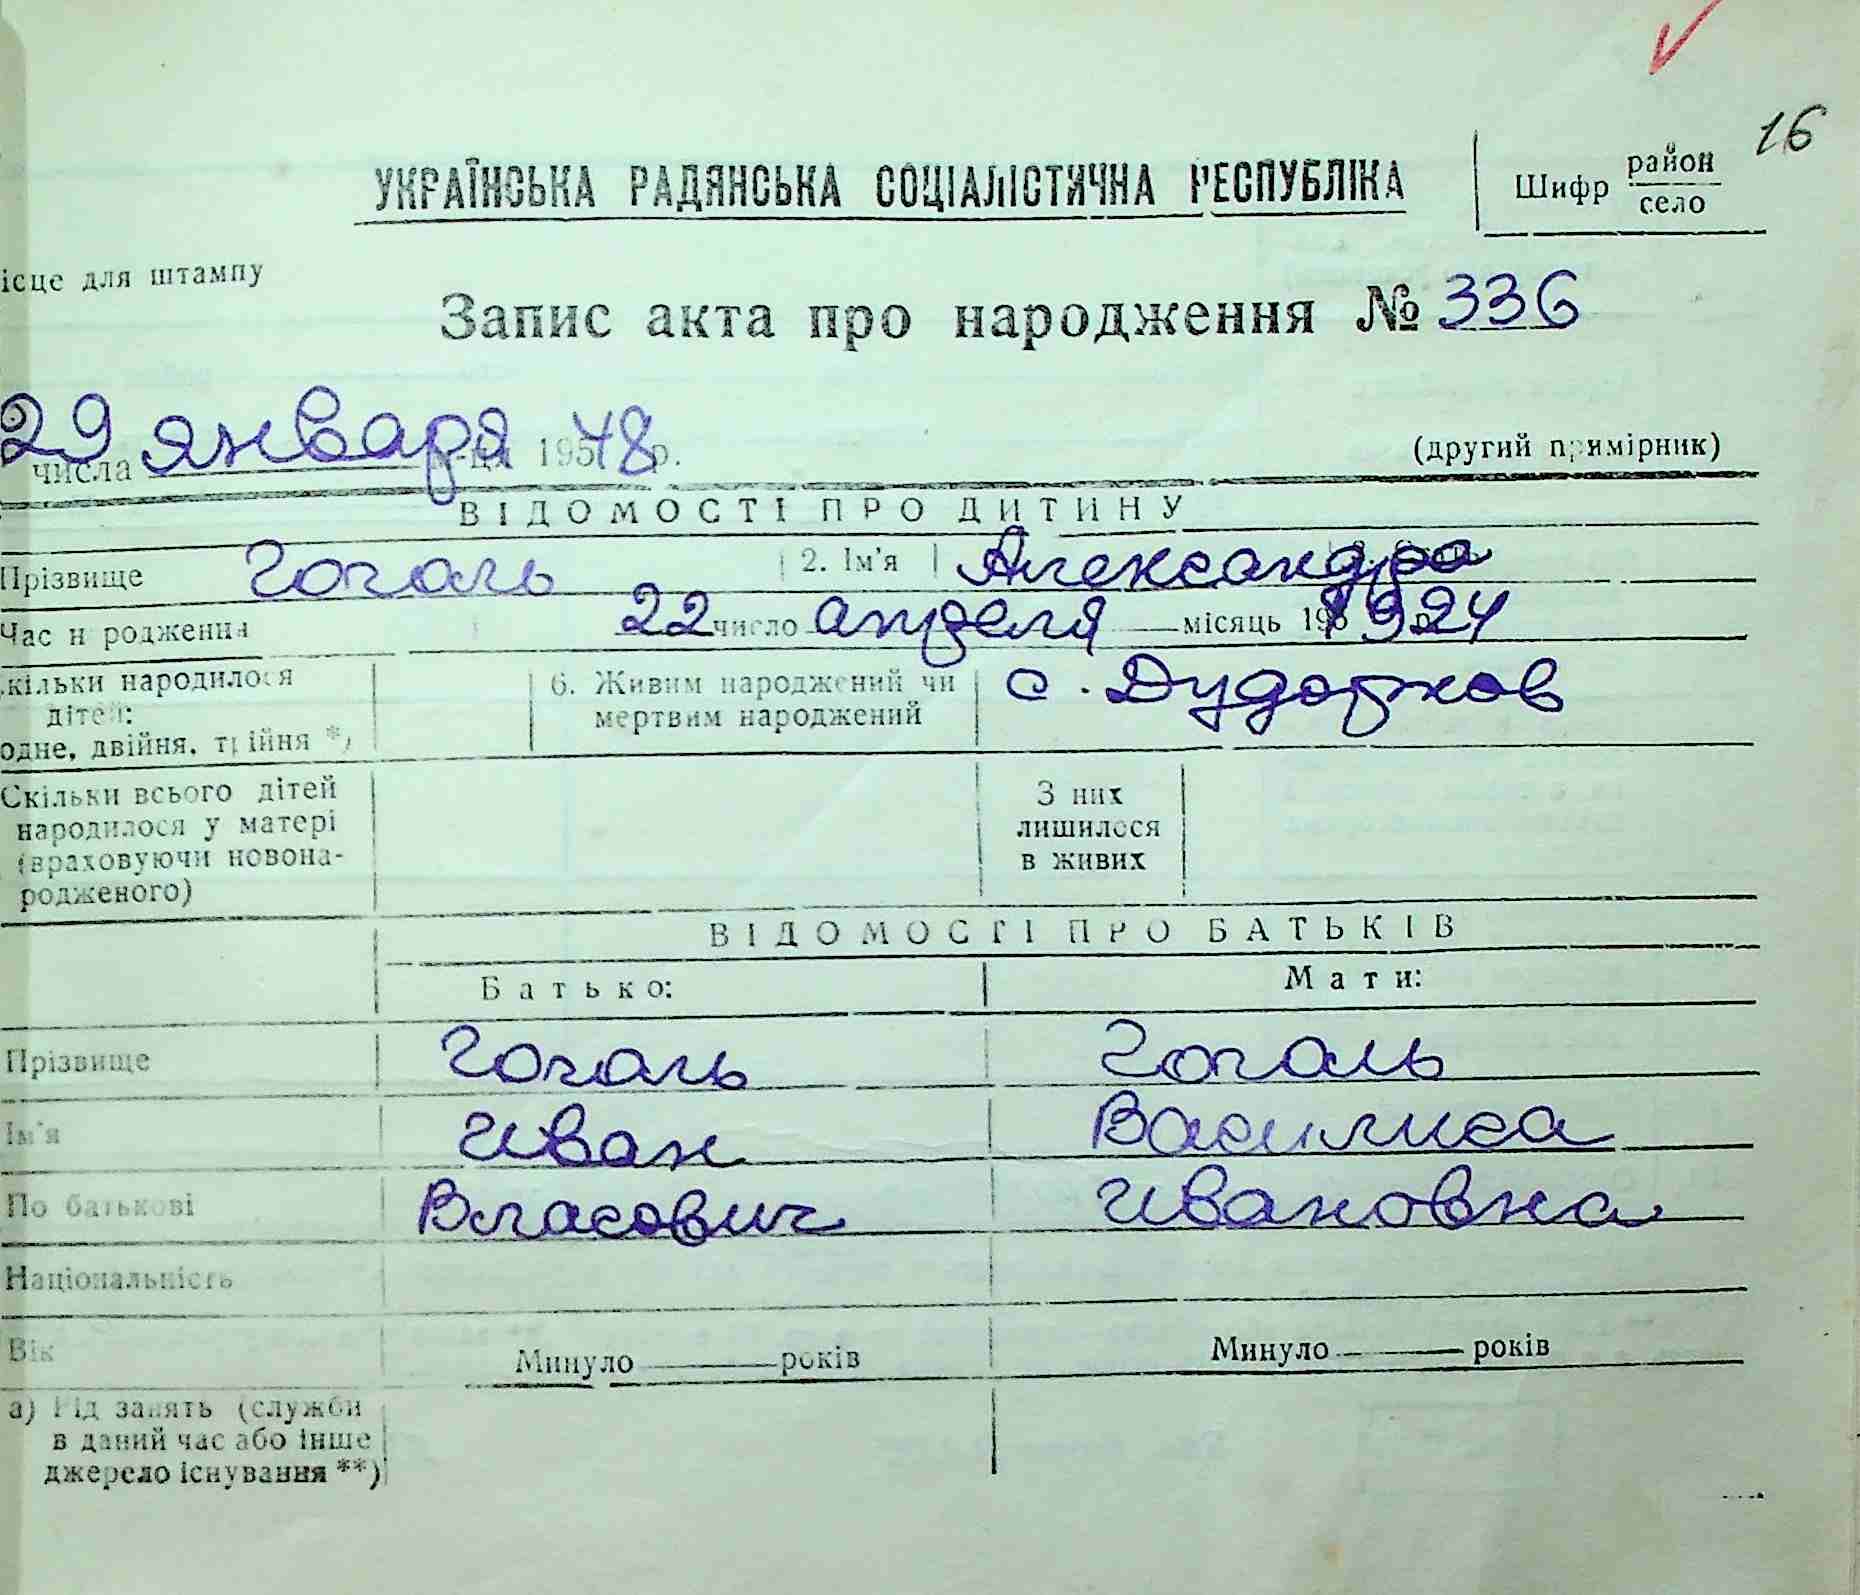 16
УКРАЇНСЬКА РАДЯНСЬКА СОЦІАЛІСТИЧНА РЕСПУБЛІКА
Шифр район
село
ісце для штампу
Запис акта про народження № 336
29 числа января м-ця 195 78 р.
(другий примірник)
ВІДОМОСТІ ПРО ДИТИНУ
Прізвище Гоголь 2. Ім'я Александра
Час народження 22 число апреля місяць 195 1924 р.
кільки народилося
дітей:
одне, двійня, трійня *)
6. Живим народжений чи
мертвим народжений
с. Дударков
Скільки всього дітей
народилося у матері
(враховуючи новона-
родженого)
З них
лишилося
в живих
ВІДОМОСТІ ПРО БАТЬКІВ
Батько: Мати:
Прізвище Гоголь Гоголь
Ім'я Иван Василиса
По батькові Власович Ивановна
Національність
Вік Минуло років Минуло років
а) Рід занять (служби
в даний час або інше
джерело існування **)